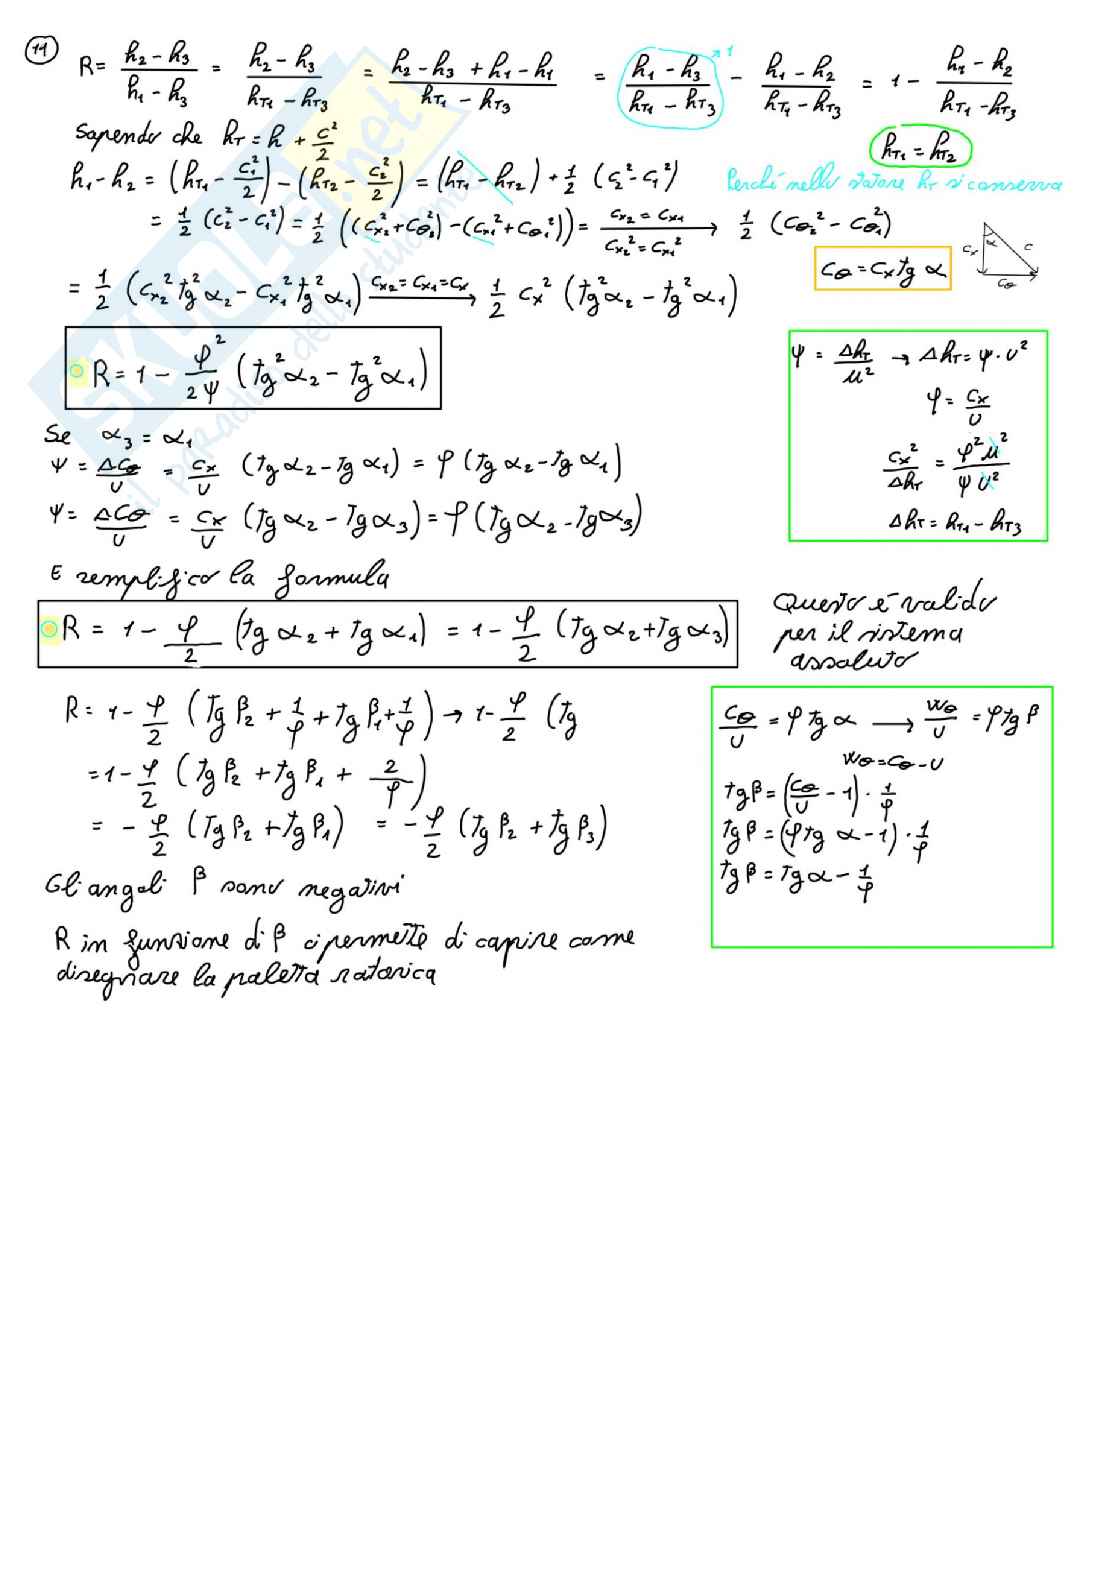 11
R = (h₂ - h₃)/(h₁ - h₃) = (h₂ - h₃)/(hT1 - hT3) = (h₂ - h₃ + h₁ - h₁)/(hT1 - hT3) = (h₁ - h₃)/(hT1 - hT3) → 1 - (h₁ - h₂)/(hT1 - hT3) = 1 - (h₁ - h₂)/(hT1 - hT3)
Sapendo che hT = h + c²/2
hT1 = hT2
h₁ - h₂ = (hT1 - c₁²/2) - (hT2 - c₂²/2) = (hT1 - hT2) + 1/2 (c₂² - c₁²)
Perché nello statore hT si conserva
= 1/2 (c₂² - c₁²) = 1/2 ((cx2² + cθ2²) - (cx1² + cθ1²)) = cx2 = cx1 cx2² = cx1² → 1/2 (cθ2² - cθ1²)
cθ = cx tg α
cx α c cθ
= 1/2 (cx2² tg² α₂ - cx1² tg² α₁) cx2 = cx1 = cx → 1/2 cx² (tg² α₂ - tg² α₁)
R = 1 - φ²/2ψ (tg² α₂ - tg² α₁)
ψ = ΔhT/u² → ΔhT = ψ · u²
φ = cx/U
cx²/ΔhT = φ² u²/ψ U²
ΔhT = hT1 - hT3
Se α₃ = α₁
ψ = Δcθ/U = cx/U (tg α₂ - tg α₁) = φ (tg α₂ - tg α₁)
ψ = Δcθ/U = cx/U (tg α₂ - tg α₃) = φ (tg α₂ - tg α₃)
E semplifico la formula
R = 1 - φ/2 (tg α₂ + tg α₁) = 1 - φ/2 (tg α₂ + tg α₃)
Questo è valido
per il sistema
assoluto
R = 1 - φ/2 (tg β₂ + 1/φ + tg β₁ + 1/φ) → 1 - φ/2 (tg
= 1 - φ/2 (tg β₂ + tg β₁ + 2/φ)
= - φ/2 (tg β₂ + tg β₁) = - φ/2 (tg β₂ + tg β₃)
cθ/U = φ tg α → wθ/U = φ tg β
wθ = cθ - U
tg β = (cθ/U - 1) · 1/φ
tg β = (φ tg α - 1) · 1/φ
tg β = tg α - 1/φ
Gli angoli β sono negativi
R in funzione di β ci permette di capire come
disegnare la paletta rotorica
SKUOLA.net
il paradiso dello studente